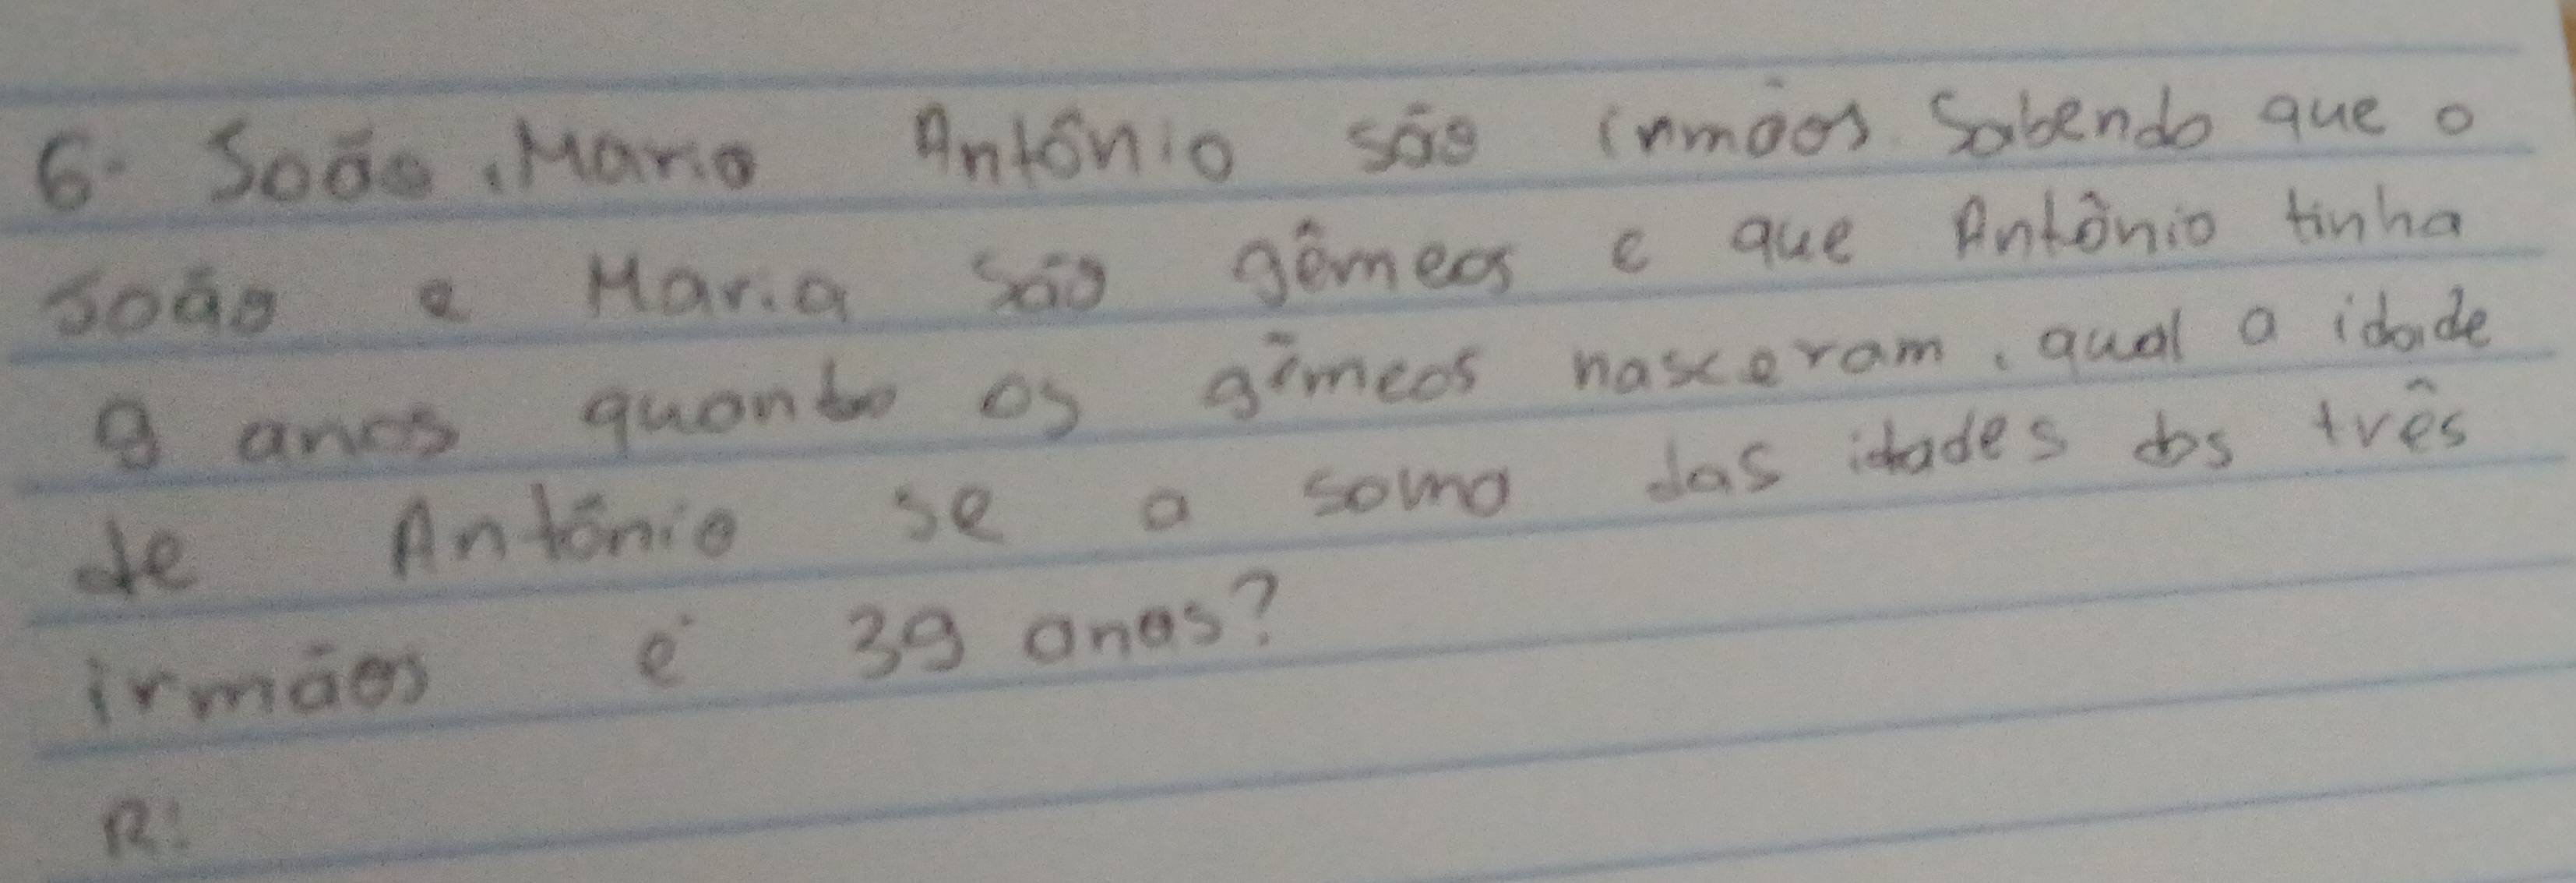 6- João, Maria Antônio são irmãos. Sabendo que o
João e Maria são gêmeos e que Antônio tinha
9 anos quanto os gêmeos nasceram, qual a idade
de Antônio se a soma das idades dos três
irmãos é 39 anos?
R: